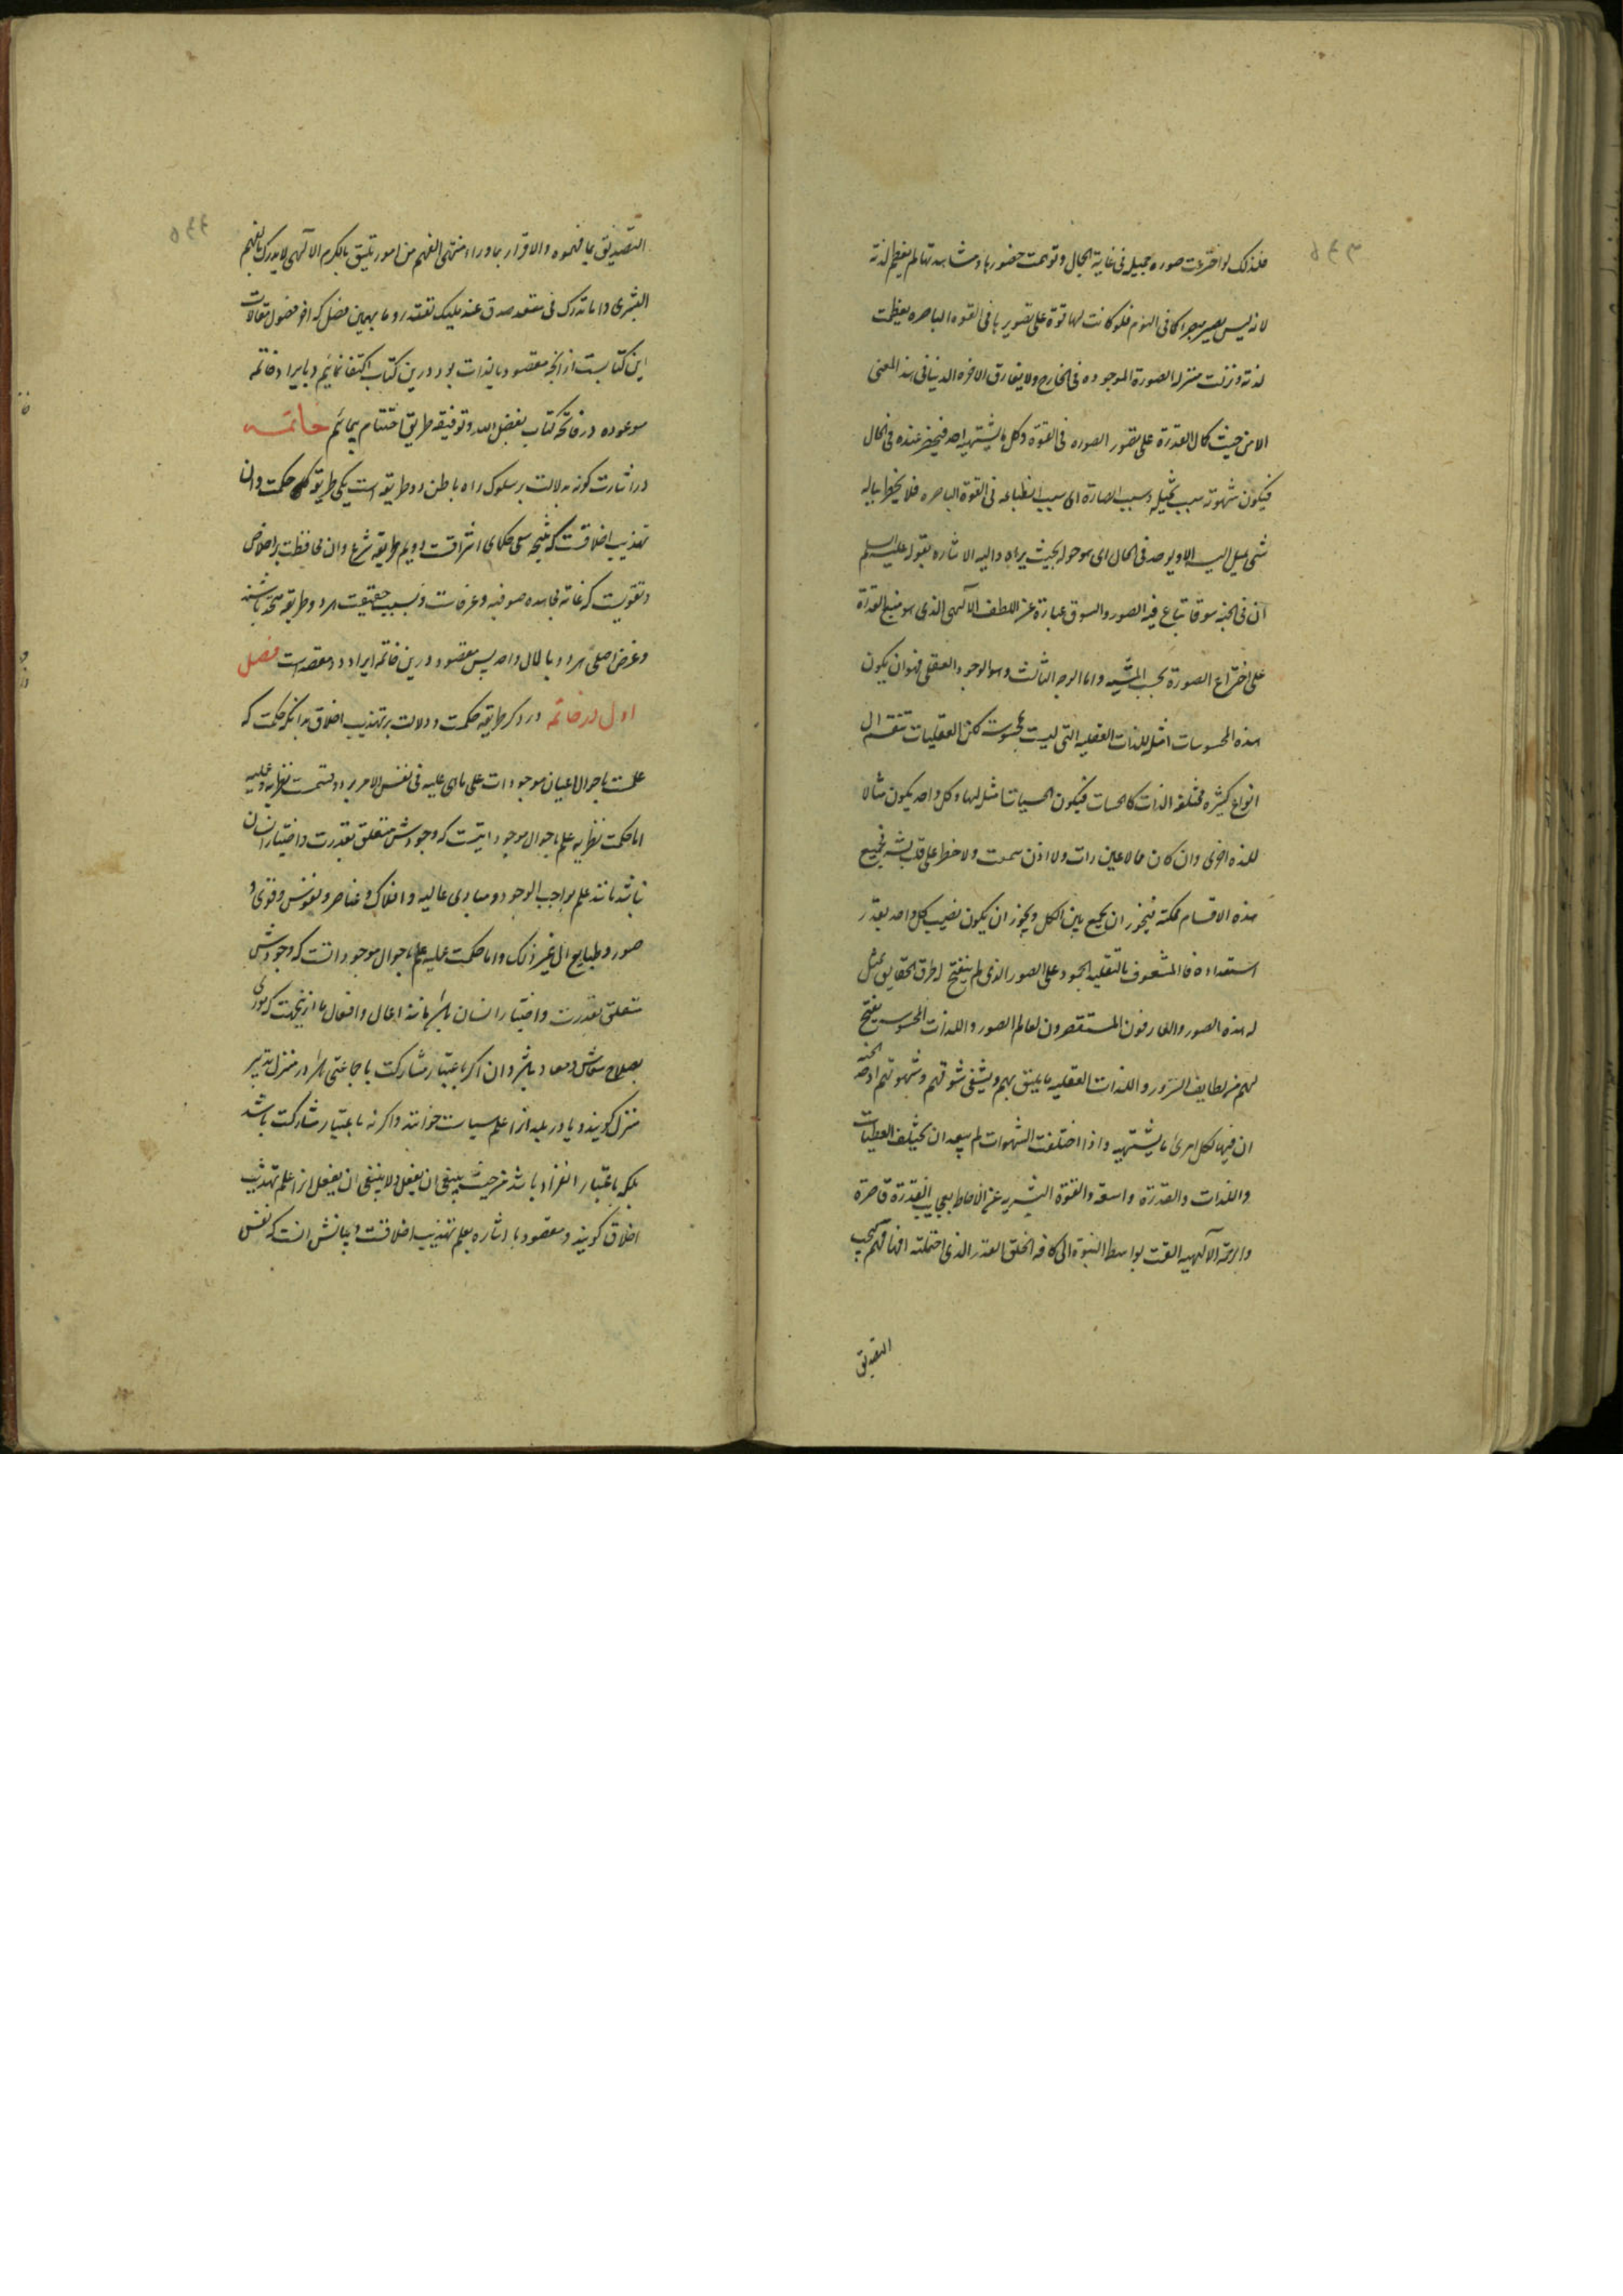 فلذلک لو اخترعت صوره جمیله فی غایة الجمال و توهمت حضورها و مشاهدتها لم یعظم لذته
لانه لیس یصیر مبصرا کما فی النوم فلو کانت لها قوة علی تصویرها فی القوه الباصره یعظمت
لذته و نزلت منزله الصورة الموجوده فی الخارج ولا یفارق الاخره الدنیا فی هذا المعنی
الا من حیث کمال القدرة علی تصور الصوره فی القوة و کل ما یشتهیه احد فیحضر عنده فی الحال
فیکون شهوته بسبب تخیله و بسبب ابصاره ای بسبب انطباعه فی القوة الباصره فلا یخطر بباله
شئ یمیل الیه الا و یوجد فی الحال ای موجوا بحیث یراه و الیه الاشاره بقوله علیه السلم
ان فی الجنه سوقا تباع فیه الصور و السوق عبارة عن اللطف الآلهی الذی هو منبع القدرة
علی اختراع الصورة بحسب المشیه و اما الوجه الثالث و هو الوجود العقلی فهو ان یکون
هذه المحسوسات امثله للذات العقلیه التی لیست بمحسوسه لکن العقلیات تنقسم الی
انواع کثیره مختلفه الذات کالحسیات فیکون الحسیات امثله لها و کل واحد یکون مثالا
للذه اخری و ان کان مما لا عین رات ولا اذن سمعت ولا خطر علی قلب بشر فجمیع
هذه الاقسام ممکنه فیجوز ان یجمع بین الکل و یجوز ان یکون نصیب کل واحد بقدر
استعداده فالمشعوف بالتقلید و الجمود علی الصور الذی لم ینفتح له طرق الحقایق یمثل
له هذه الصور و العارفون المستقصرون لعالم الصور و اللذات المحسوسه یفتح
لهم من لطایف السرور و اللذات العقلیه ما یلیق بهم و یشفی شوقهم و شهوتهم اذ حد الجنه
ان فیها لکل امرئ ما یشتهیه و اذا اختلفت الشهوات لم یبعد ان یختلف العطیات
و اللذات و القدرة واسعة و القوة البشریه عن الاحاطه بعجایب القدرة قاصرة
و الرحمة الآلهیه القت بواسطه النبوة الی کافه الخلق القدر الذی احتملته افهامهم فیجب
التصدیق
التصدیق بما فهموه و الاقرار بما وراء منتهی الفهم من امور تلیق بالکرم الآلهی لا یدرک بالفهم
البشری و انما تدرک فی مقعد صدق عند ملیک مقتدر و ما بهمین فصل که اخر فصول مقالات
این کتابست از انچه مقصود بالذات بود درین کتاب اکتفا نمائیم و بایراد خاتمه
موعوده در فاتحه کتاب بفضل الله و توفیقه طریق اختتام پیمائیم خاتمـه
در اشارت کونه بدلالت بر سلوک راه باطن و دو طریقه است یکی طریقه حکمت و ان
تهذیب اخلاقست که نتیجه سعی حکمای اشراقست دویم طریقه شرع و ان محافظت بر اخلاص
و تقویست که غایة مجاهده صوفیه و عرفاست و بحسب حقیقت هر دو طریقه متحد باشند
و غرض اصلی هر دو بالمال واحد پس مقصود درین خاتمه ایراد دو مقصد است فصل
اول در خاتمه در ذکر طریقه حکمت و دلالت بر تهذیب اخلاق بدانکه حکمت که
علمست باحوال اعیان موجودات علی ما هی علیه فی نفس الامر بر دو قسمست نظریه و عملیه
اما حکمت نظریه علم باحوال موجوداتیست که وجودش متعلق بقدرت و اختیار انسان
نباشد مانند علم بواجب الوجود و مبادی عالیه و افلاک و عناصر و نفوس و قوی و
صور و طبایع الی غیر ذلک و اما حکمت عملیه علم باحوال موجوداتست که وجودش
متعلق بقدرت و اختیار انسان باشد مانند اعمال و افعال ما ازینجهت که مودی
بصلاح معاش و معاد باشد و ان اکر باعتبار مشارکت با جماعتی باشد در منزل تدبیر
منزل کویند و یا در بلد انرا علم سیاست خوانند و اکر نه باعتبار مشارکت باشد
بلکه باعتبار انفراد باشد من حیث ینبغی ان یفعل و لا ینبغی ان یفعل انرا علم تهذیب
اخلاق کویند و مقصود ما اشاره بعلم تهذیب اخلاقست و بیانش انست که نفس